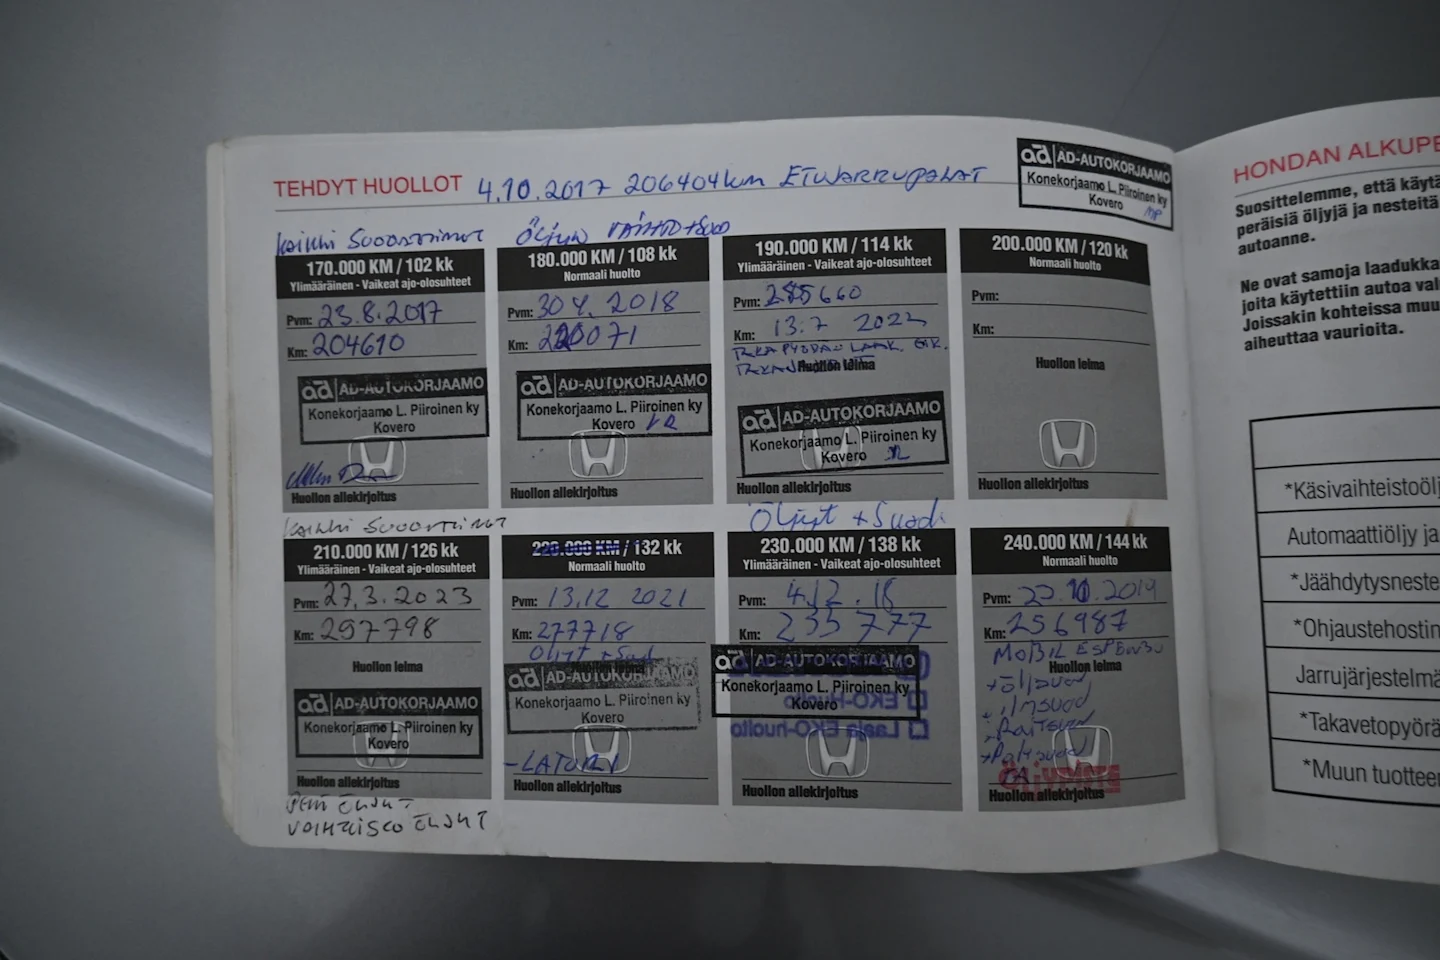 TEHDYT HUOLLOT 4.10.2017 206404km ETUJARRUPALAT
ad AD-AUTOKORJAAMO
Konekorjaamo L. Piiroinen ky
Kovero
Kaikki Suodattimet
170.000 KM / 102 kk
Ylimääräinen - Vaikeat ajo-olosuhteet
Pvm: 23.8.2017
Km: 204610
ad AD-AUTOKORJAAMO
Konekorjaamo L. Piiroinen ky
Kovero
Huollon allekirjoitus
Öljyn vaihto + suod
180.000 KM / 108 kk
Normaali huolto
Pvm: 30 4. 2018
Km: 220071
ad AD-AUTOKORJAAMO
Konekorjaamo L. Piiroinen ky
Kovero
Huollon allekirjoitus
190.000 KM / 114 kk
Ylimääräinen - Vaikeat ajo-olosuhteet
Pvm: 285660
Km: 13.7 2022
Huollon leima
ad AD-AUTOKORJAAMO
Konekorjaamo L. Piiroinen ky
Kovero
Huollon allekirjoitus
200.000 KM / 120 kk
Normaali huolto
Pvm:
Km:
Huollon leima
Huollon allekirjoitus
Kaikki Suodattimet
210.000 KM / 126 kk
Ylimääräinen - Vaikeat ajo-olosuhteet
Pvm: 27.3.2023
Km: 297798
Huollon leima
ad AD-AUTOKORJAAMO
Konekorjaamo L. Piiroinen ky
Kovero
Huollon allekirjoitus
PERÄ ÖLJYT
VAIHTEISTO ÖLJYT
220.000 KM / 132 kk
Normaali huolto
Pvm: 13.12 2021
Km: 277718
Öljyt + Suod
Huollon leima
ad AD-AUTOKORJAAMO
Konekorjaamo L. Piiroinen ky
Kovero
- LATURI
Huollon allekirjoitus
Öljyt + Suod.
230.000 KM / 138 kk
Ylimääräinen - Vaikeat ajo-olosuhteet
Pvm: 4.12.18
Km: 235777
ad AD-AUTOKORJAAMO
Konekorjaamo L. Piiroinen ky
Kovero
EKO-Huolto
Laaja EKO-huolto
Huollon allekirjoitus
240.000 KM / 144 kk
Normaali huolto
Pvm: 22.10.2019
Km: 256987
MOBIL ESP 5W30
Huollon leima
+ Öljysuod
+ ilmsuod
+ Raitsuod
+ Polt.suod
Huollon allekirjoitus
HONDAN ALKUPE
Suosittelemme, että käytä
peräisiä öljyjä ja nesteitä
autoanne.
Ne ovat samoja laadukka
joita käytettiin autoa val
Joissakin kohteissa muu
aiheuttaa vaurioita.
*Käsivaihteistoölj
Automaattiöljy ja
*Jäähdytysneste
*Ohjaustehostin
Jarrujärjestelmä
*Takavetopyörä
*Muun tuotteen